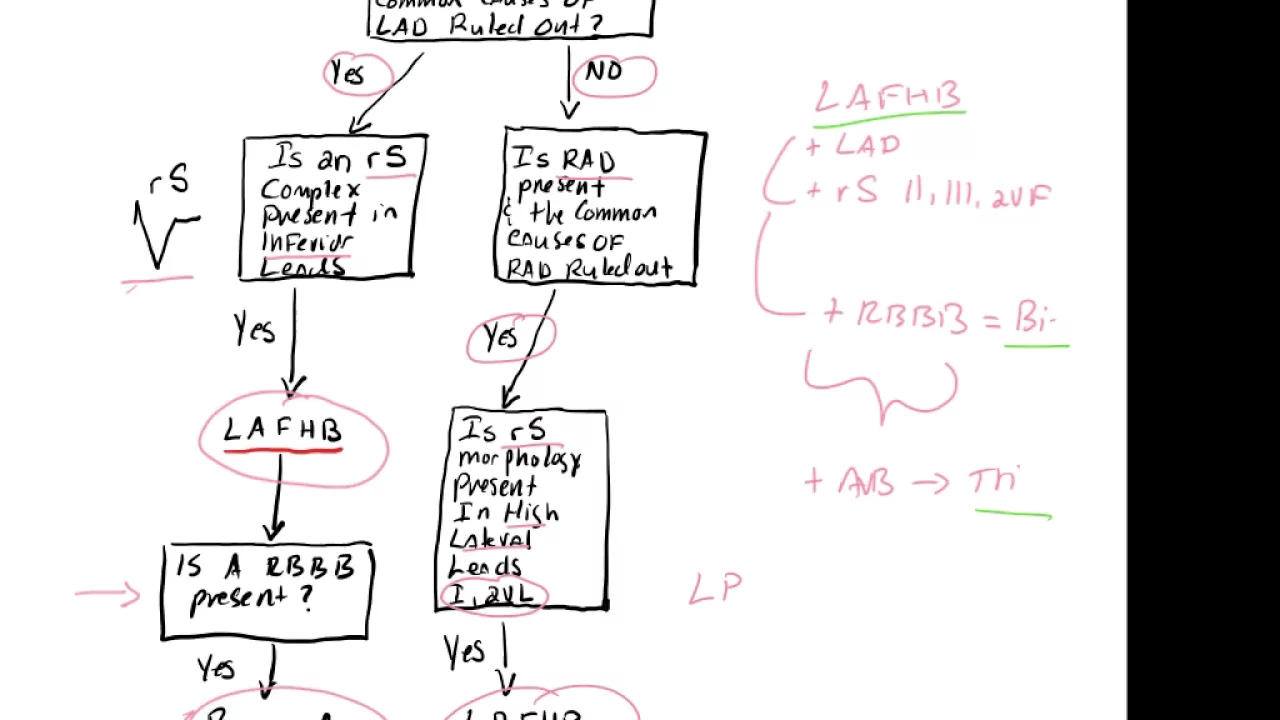 Common Causes OF
LAD Ruled Out?
Yes
NO
rS
Is an rS
Complex
present in
Inferior
Leads
Is RAD
present
& the Common
Causes OF
RAD Ruled out
Yes
Yes
LAFHB
Is rS
morphology
Present
In High
Lateral
Leads
I, aVL
IS A RBBB
present?
Yes
Yes
LPFHB
LAFHB
+ LAD
+ rS II, III, aVF
+ RBBB = Bi-
+ AVB → Tri
LP